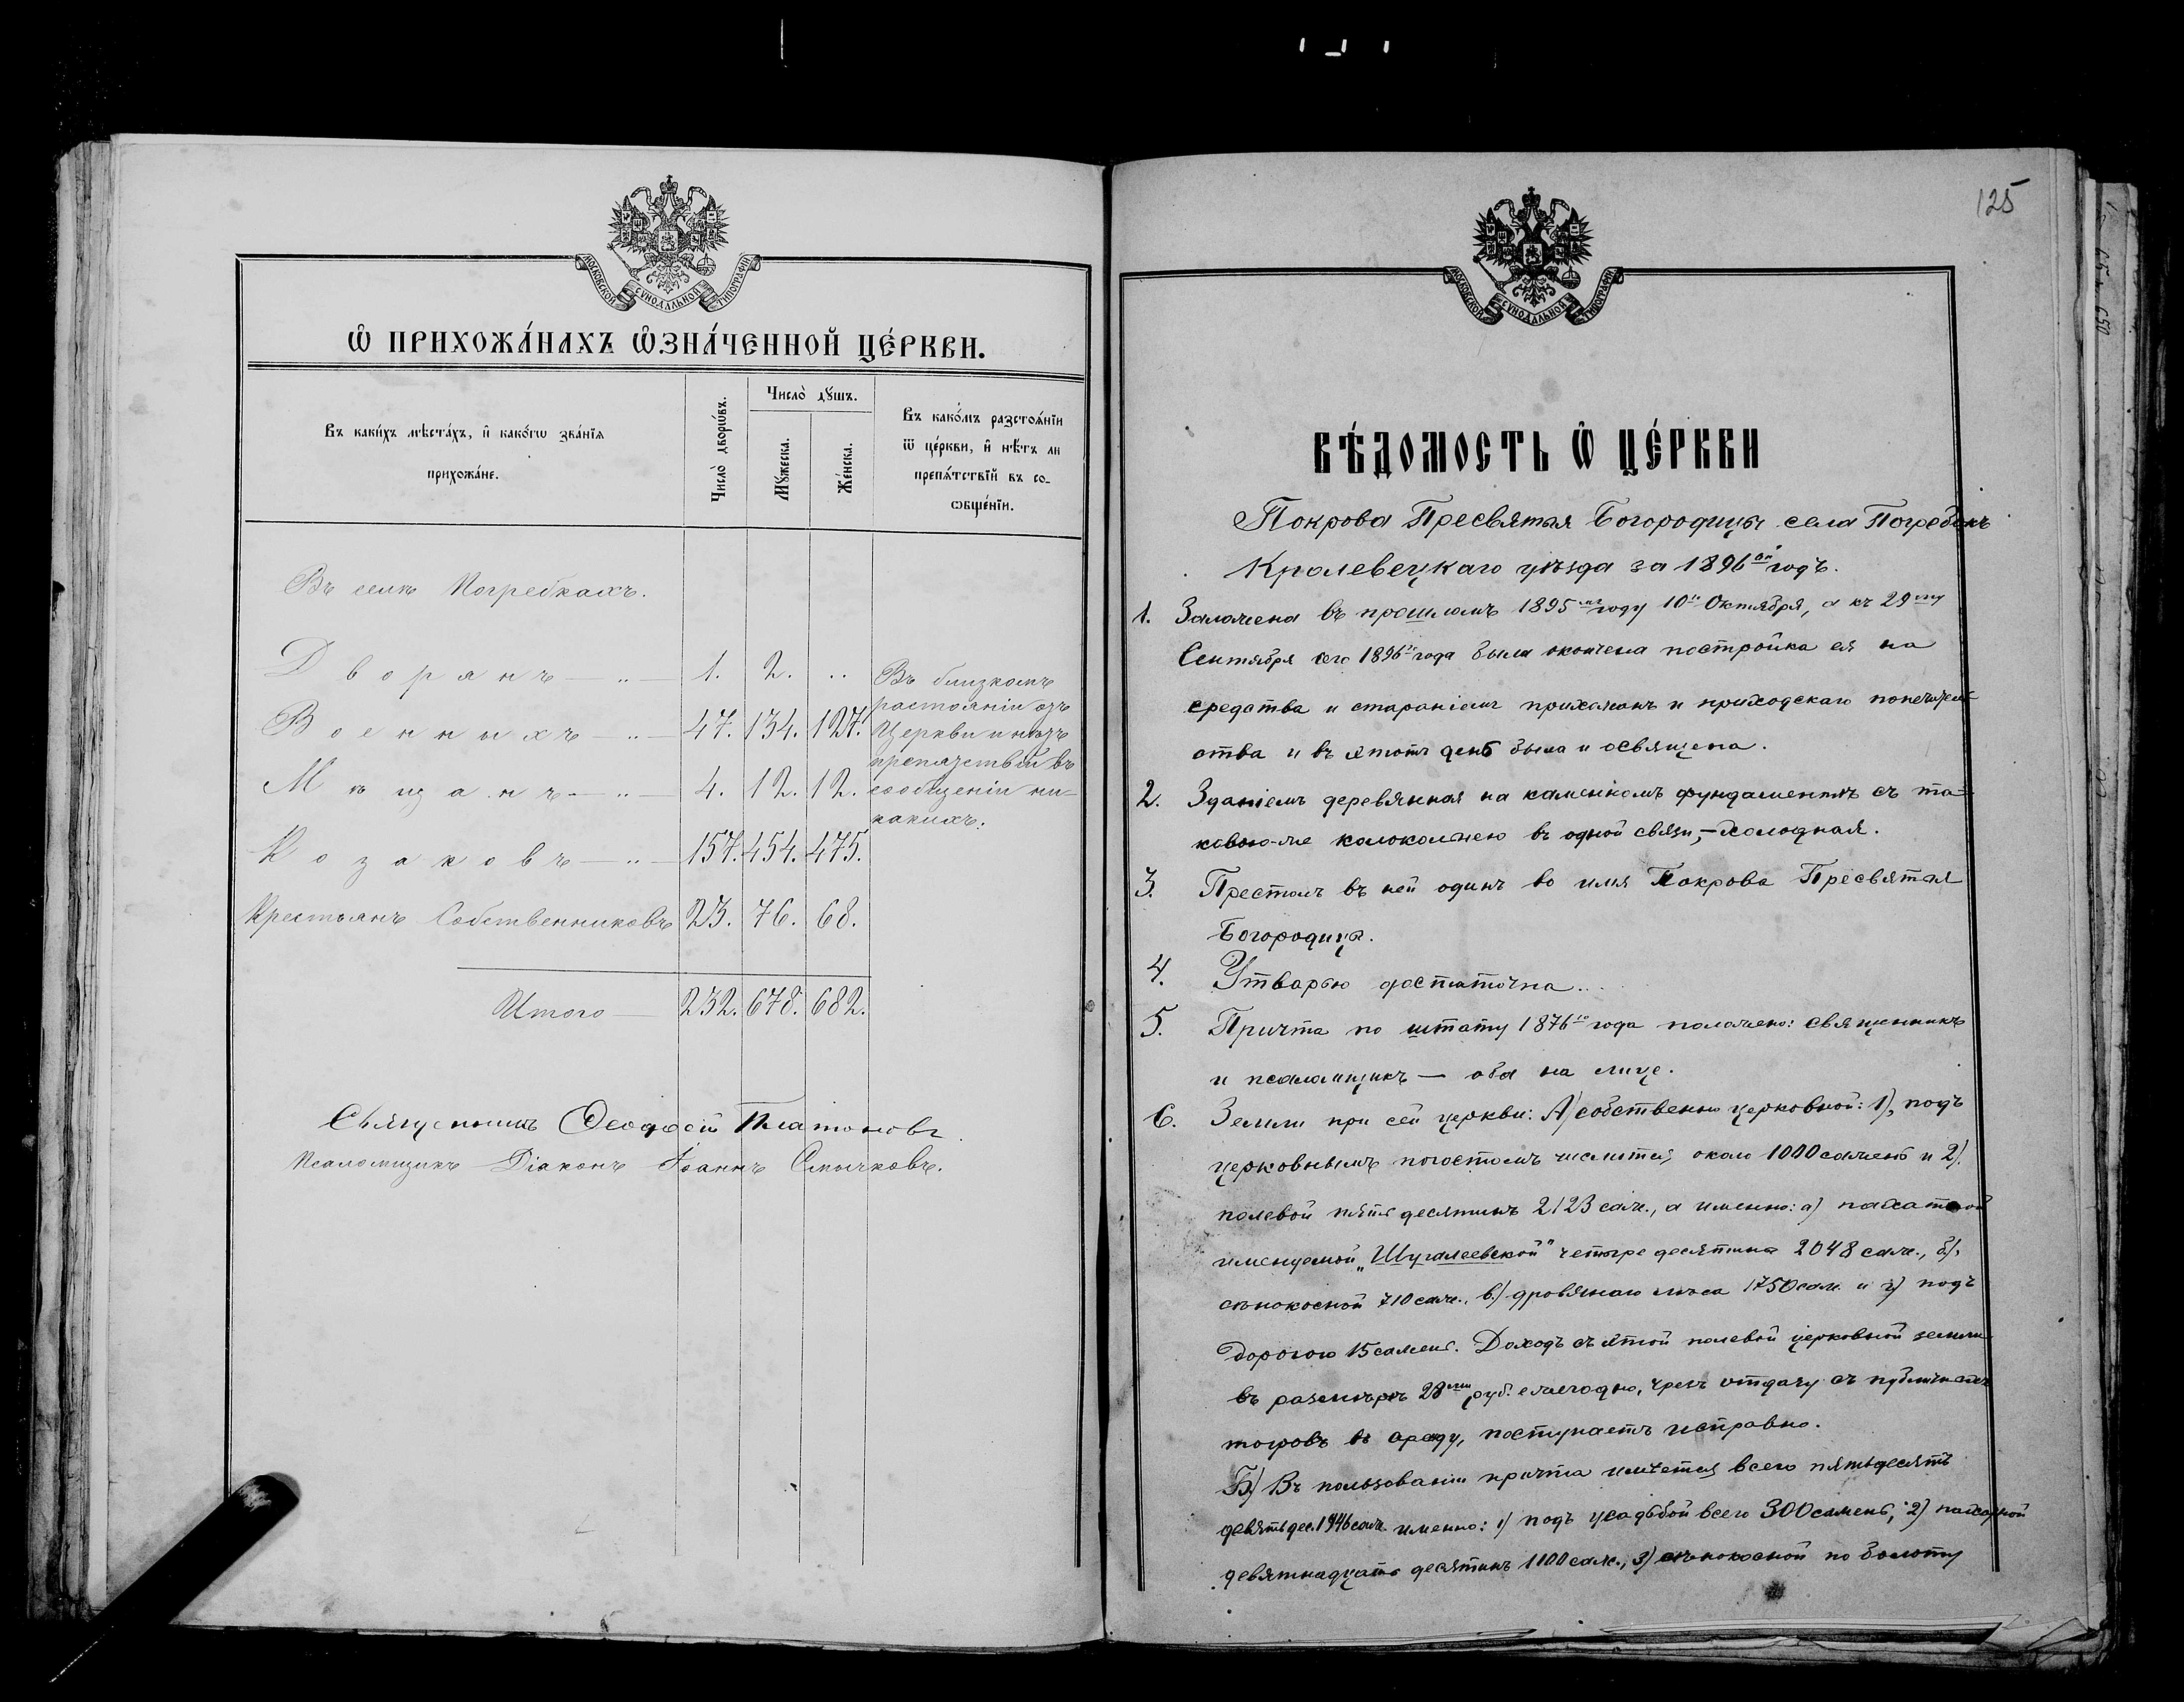 МОСКОВСКОЙ СѴНОДАЛЬНОЙ ТИПОГРАФІИ
Ѡ ПРИХОЖА́НАХЪ Ѡ҆ЗНА́ЧЕННОЙ ЦЕ́РКВИ.
Въ каки́хъ мѣста́хъ, и҆ како́гѡ зва́нїѧ
прихожа́не.
Число̀ дворѡ́въ.
Число̀ дꙋшъ.
Мꙋ́жеска.
Же́нска.
Въ како́мъ разстоѧ́нїи
ѿ це́ркви, и҆ нѣ́тъ ли
препѧ́тствїй въ со-
ѻбще́нїи.
Въ селѣ Погребкахъ.
Дворянъ — „ — 1. 2. ..
Военныхъ — „ — 47. 134. 127.
Мѣщанъ — „ — 4. 12. 12.
Козаковъ — „ — 157. 454. 475.
Крестьянъ Собственниковъ 23. 76. 68.
Въ близкомъ
растояніи отъ
Церкви и нѣтъ
препятствій въ
сообщеніи ни-
какихъ.
Итого — 232. 678. 682.
Священникъ Ѳеодосій Платоновъ
Псаломщикъ Діаконъ Іоаннъ Смычковъ.
125
МОСКОВСКОЙ СѴНОДАЛЬНОЙ ТИПОГРАФІИ
ВѢ́ДОМОСТЬ Ѡ ЦЕ́РКВИ
Покрова Пресвятыя Богородицы села Погребокъ
Кролевецкаго уѣзда за 1896ой годъ.
1. Заложена въ прошломъ 1895мъ году 10го Октября, а къ 29му
Сентября сего 1896го года была окончена постройка ея на
средства и стараніемъ прихожанъ и приходскаго попечитель-
ства и въ этотъ день была и освящена.
2. Зданіемъ деревянная на каменномъ фундаментѣ съ та-
ковою-же колокольнею въ одной связи, – холодная.
3. Престолъ въ ней одинъ во имя Покрова Пресвятыя
Богородицы.
4. Утварью достаточна.
5. Причта по штату 1876го года положено: священникъ
и псаломщикъ — оба на лице.
6. Земли при сей церкви: А) собственно церковной: 1), подъ
церковнымъ погостомъ числится около 1000 сажень и 2).
полевой пять десятинъ 2123 саж., а именно: а) пахатной
именуемой „Шугалеевской" четыре десятины 2048 саж., б),
сѣнокосной 710 саж., в.) дровянаго лѣса 1750 саж. и г) подъ
дорогою 15 сажень. Доходъ съ этой полевой церковной земли
въ размѣрѣ 28ми руб. ежегодно, чрезъ отдачу съ публичныхъ
торговъ въ аренду, поступаетъ исправно.
Б) Въ пользованіи причта имѣется всего пятьдесятъ
девять дес. 1946 саж. именно: 1) подъ усадьбой всего 300 сажень; 2) пахатной
девятнадцать десятинъ 1100 саж., 3) сѣнокосной по болоту